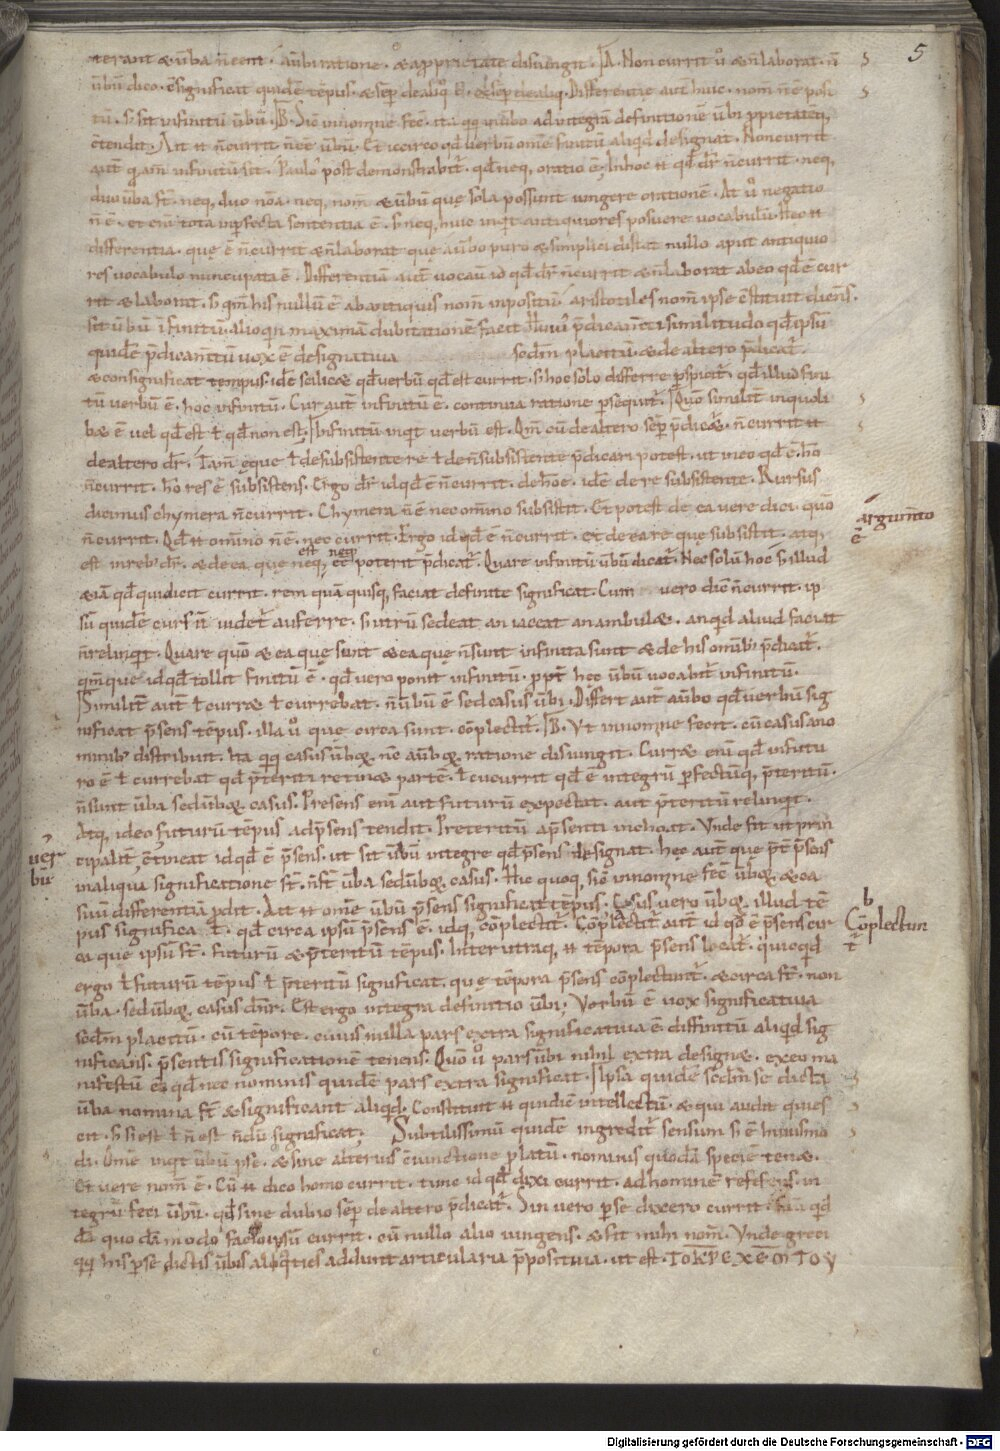 5
terant & uƀa ñ eent. a uƀi ratione. & a pprietate disiungit. A. Non currit ů & ñ laborat. ñ
uƀu dico. c̄significat quidē tēpus. & sēp de aliq̊ ē. Differentię aut̄ huic. nom̄ ñ ē posi
tū. S; sit infinitū uƀū. B. Sic̄ in nomine fec̄. ita qq; in uƀo ad integrā definitionē uƀi pprietatē
c̄tendit. Ait n̄ ñ currit ñ ēē uƀū. Et iccirco qd̄ uerbū omē finitū aliqd̄ designat. Non currit
aut̄ q̄m̄ infinitū sit. Paulo post demonstrabit̄. qd̄ neq; oratio ē. In hoc n̄ qd̄ dr̄ ñ currit. neq;
duo uƀa st̄. neq; duo nōa. neq; nom̄ & uƀū quę sola possunt iungere orationē. At ů negatio
ñ ē. et eni tota inperfecta sententia ē. S; neq; huic inquit antiquiores posuere uocabulū. Hęc n̄
differentia. quę ē ñ currit & ñ laborat quę a uƀo puro & simplici distat nullo aput antiquio
res uocabulo nuncupata ē. Differentiā aut̄ uocauit id qd̄ dr̄ ñ currit & ñ laborat ab eo qd̄ ē cur
rit & laborat. S; q̄m̄ his nullū ē ab antiquis nom̄ inpositū. aristotiles nom̄ ipse c̄stituit dicens.
sit uƀū infinitū. alioquin maximā dubitationē facit similitudo qd̄ ipsū
quidē p̄dicam̄tū uox ē designatiua sedm̄ placitū. & de altero p̄dicat̄.
& consignificat tempus. idē scilic& qd̄ uerbū qd̄ est currit. S; hoc solo differre pspicit̄. qd̄ illud fini
tū uerbū ē. hoc infinitū. Cur aut̄ infinitū ē. continua ratione psequit̄. Quo similit̄ in quoli
b& ē uel qd̄ est ł qd̄ non est. Infinitū inqt̄ uerbū est. Qm̄ cū de altero sēp p̄dicet̄. ñ currit n̄
de altero dr̄. Tam̄ ęque ł de subsistente re ł de ñ subsistente p̄dicari potest. ut in eo qd̄ ē. hō
ñ currit. hō res ē subsistens. Ergo dr̄ id qd̄ ē ñ currit. de hōe. idē de re subsistente. Rursus
dicimus chymera ñ currit. Chymera ñ ē nec om̄ino subsistit. Et potest de ea uere dici. quō
ñ currit. Qd̄ n̄ om̄ino ñ ē. nec currit. Ergo id qd̄ ē ñ currit. et de ea re quę subsistit. atq;
est in reb; dr̄. & de ea quę neq; est neq; ēē poterit p̄dicat̄. Quare infinitū uƀū dicat̄. Nec solū hoc S; illud
& iā qd̄ qui dicit currit. rem quā quisq; faciat definite significat. Cum uero dic̄ ñ currit. ip
sū quidē cursū uidet̄ auferre. S; utrū sedeat an iaceat an ambul&. an qd̄ aliud faciat
ñ relinqt̄. Quare quō & ea quę sunt & ea quę ñ sunt infinita sunt & de his om̄ib; p̄dicat̄.
qm̄que id qd̄ tollit finitū ē. qd̄ uero ponit infinitū. ppt̄ hec uƀū uocabit̄ infinitū.
Similit̄ aut̄ ł curr& ł currebat. ñ uƀū ē sed casus uƀi. Differt aut̄ a uƀo qd̄ uerbū sig
nificat p̄sens tēpus. illa ů que circa sunt. cōplectit̄. B. Vt in nomine fecit. cū casus a no
minib; distribuit. Ita qq; casus uƀoꝝ. ne a uƀoꝝ ratione disiungit. Curr& eni qd̄ infutu
ro ē ł currebat qd̄ p̄teriti retin& partē. ł cucurrit qd̄ ē integrū pfectūq; p̄teritū.
ñ sunt uƀa sed uƀoꝝ casus. Presens eni aut futurū expectat. aut p̄teritū relinqt̄.
Atq; ideo futurū tēpus ad p̄sens tendit. Preteritū a p̄senti inchoat. Vnde fit ut prin
cipalit̄ c̄tineat id qd̄ ē p̄sens. ut sit uƀū integre qd̄ p̄sens designat. hęc aut̄ que p̄t p̄sens
in aliqua significatione st̄. ñ st̄ uƀa sed uƀoꝝ casus. Hic quoq; sic̄ in nomine fec̄ uƀoꝝ & ea
suū differentiā pdit. Ait n̄ omē uƀū p̄sens significat tēpus. Casus uero uƀoꝝ. illud tē
pus significa t. qd̄ circa ipsū p̄sens ē. idq; cōplectit̄. Cōplectit̄ aut̄ id qd̄ ē p̄sens cir
ca que ipsū st̄. futurū & p̄teritū tēpus. Inter utraq; n̄ tēpora p̄sens locat̄. quicqd̄
ergo ł futurū tēpus ł p̄teritū significat. quę tēpora p̄sens cōplectunt̄. & circa st̄. non
uƀa. sed uƀoꝝ casus dn̄r. Est ergo integra definitio uƀi; Verbū ē uox significatiua
sedm̄ placitū. cū tēpore. cuius nulla pars extra significatiua ē. diffinitū aliqd̄ sig
nificans. p̄sentis significationē tenens. Quō ů pars uƀi nihil extra design&. ex eo ma
nifestū ē. qd̄ nec nominis quidē pars extra significat. Ipsa quidē sedm̄ se dicta
uƀa nomina st̄ & significant aliqd̄. Constituit n̄ qui dic̄ intellectū. & qui audit quies
cit. S; si est ł ñ est ñdū significat; Subtilissimū quidē ingredit̄ sensum si ē huiusmo
di. Omē inqt̄ uƀū p se. & sine alterius c̄iunctione platū. nominis quodā specie ten&.
Et uere nom̄ ē. Cū n̄ dico homo currit. tunc id qd̄ dixi currit. ad hominē referens. in
tegrū feci uƀū. qd̄ sine dubio sēp de altero p̄dicat̄. Sin uero p se dixero currit.
dā quodā modo facio ipsū currit. cū nullo alio iungens. & fit mihi nom̄. Vnde greci
qq; his p se dictis uƀis aliq̄ties addunt articularia p̄positiua. ut est. TO
argum̄to
ē
uer
bū
b
Cōplectun
t̄
Digitalisierung gefördert durch die Deutsche Forschungsgemeinschaft - DFG